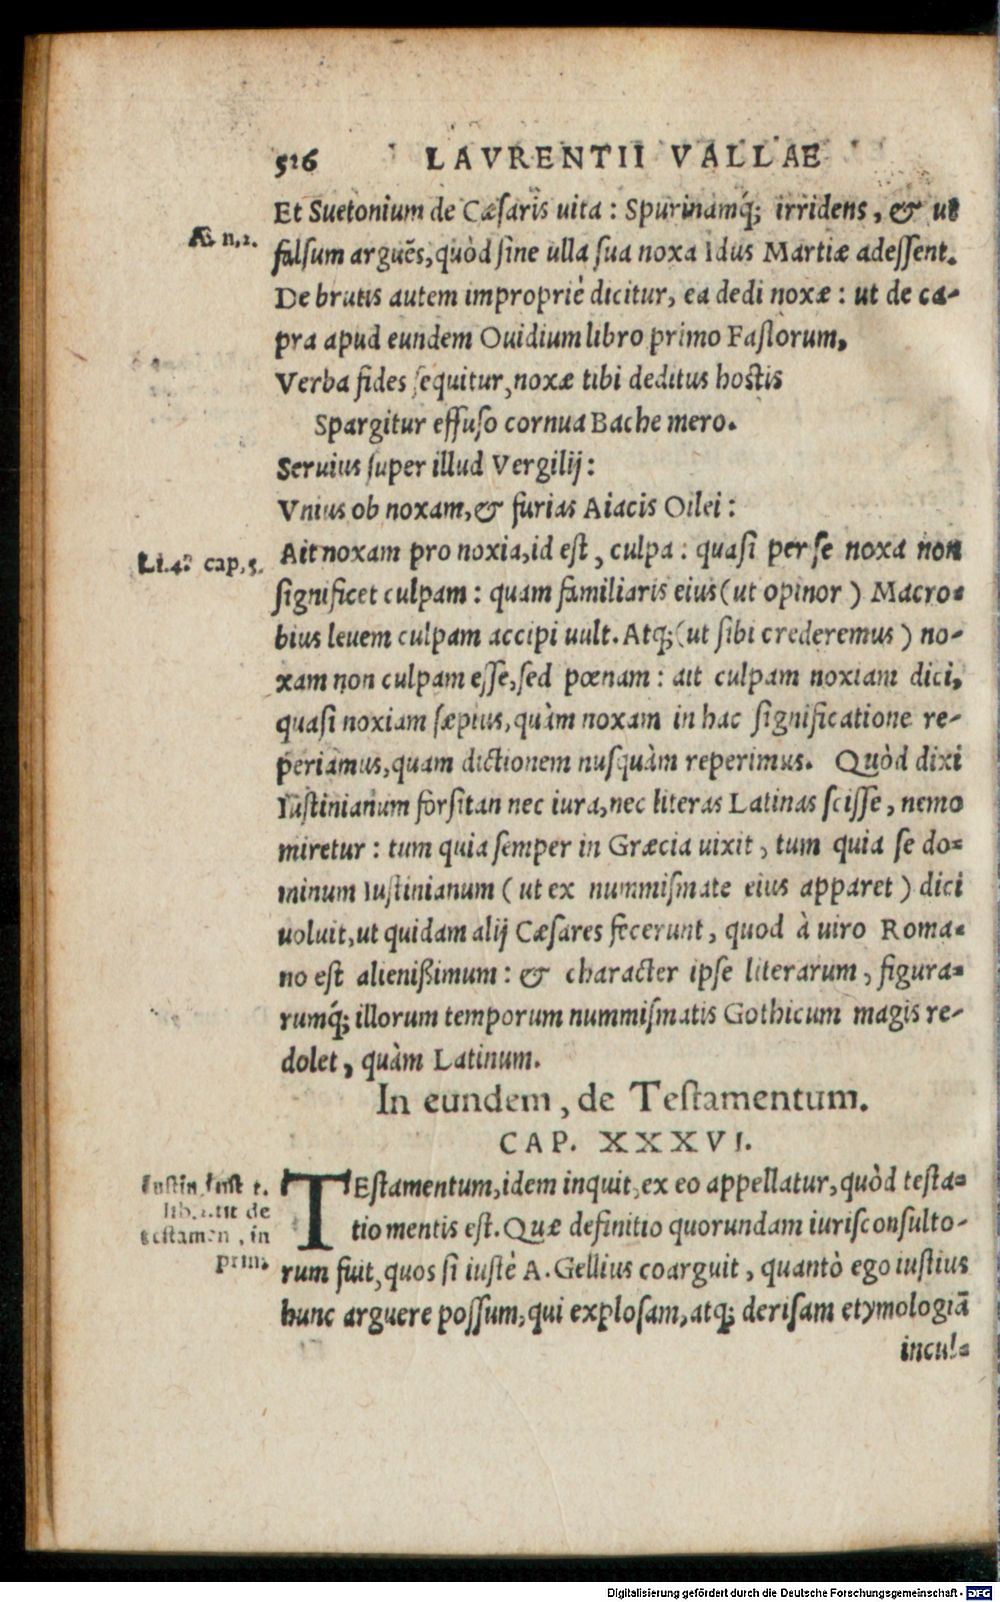 526 LAVRENTII VALLAE
Et Suetonium de Cæsaris uita : Spurinamq́; irridens, & ut
Æn, 2.
falsum arguēs, quòd sine ulla sua noxa Idus Martiæ adessent.
De brutis autem impropriè dicitur, ea dedi noxæ : ut de ca-
pra apud eundem Ouidium libro primo Fastorum,
Verba fides sequitur, noxæ tibi deditus hostis
Spargitur effuso cornua Bache mero.
Seruius super illud Vergilij :
Vnius ob noxam, & furias Aiacis Oilei :
Li. 4. cap, 5.
Ait noxam pro noxia, id est, culpa : quasi per se noxa non
significet culpam : quam familiaris eius (ut opinor) Macro-
bius leuem culpam accipi uult. Atq; (ut sibi crederemus) no-
xam non culpam esse, sed pœnam : ait culpam noxiam dici,
quasi noxiam sæpius, quàm noxam in hac significatione re-
periamus, quam dictionem nusquàm reperimus. Quòd dixi
Iustinianum forsitan nec iura, nec literas Latinas scisse, nemo
miretur : tum quia semper in Græcia uixit, tum quia se do-
minum Iustinianum (ut ex nummismate eius apparet) dici
uoluit, ut quidam alij Cæsares fecerunt, quod à uiro Roma-
no est alienißimum : & character ipse literarum, figura-
rumq́; illorum temporum nummismatis Gothicum magis re-
dolet, quàm Latinum.
In eundem, de Testamentum.
CAP. XXXVI.
Iustin, Inst t.
lib. 2. tit de
testamen, in
prin.
TEstamentum, idem inquit, ex eo appellatur, quòd testa-
tio mentis est. Quæ definitio quorundam iurisconsulto-
rum fuit, quos si iustè A. Gellius coarguit, quantò ego iustius
hunc arguere possum, qui explosam, atq; derisam etymologiā
incul-
Digitalisierung gefördert durch die Deutsche Forschungsgemeinschaft - DFG